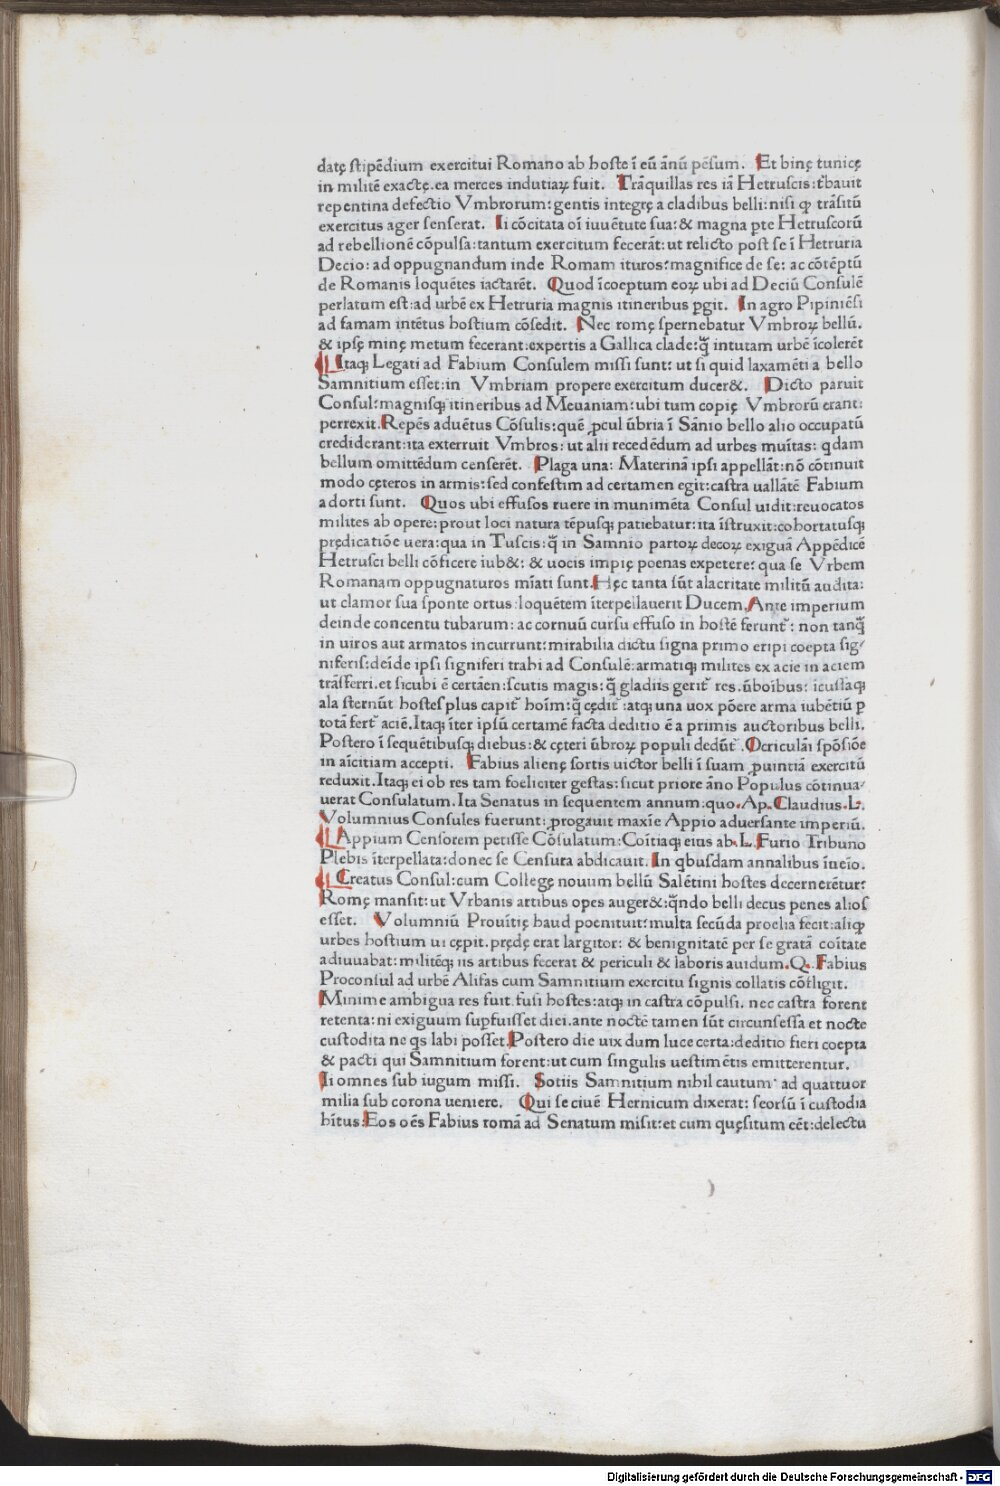 datę stipēdium exercitui Romano ab hoste ī eū ānū pēsum. Et binę tunicę
in militē exactę. ea merces indutiaꝝ fuit. Trāquillas res iā Hetruscis: t̄bauit
repentina defectio Vmbrorum: gentis integrę a cladibus belli: nisi ꝙ trāsitū
exercitus ager senserat. Ii cōcitata oī iuuētute sua: & magna ꝑte Hetruscorū
ad rebellionē cōpulsa: tantum exercitum fecerāt: ut relicto post se ī Hetruria
Decio: ad oppugnandum inde Romam ituros: magnifice de se: ac cōtēptū
de Romanis loquētes iactarēt. Quod īcoeptum eoꝝ ubi ad Deciū Consulē
perlatum est: ad urbē ex Hetruria magnis itineribus ꝑgit. In agro Pipiniēsi
ad famam intētus hostium cōsedit. Nec romę spernebatur Vmbroꝝ bellū.
& ipsę minę metum fecerant: expertis a Gallica clade: q̄ intutam urbē īcolerēt
Itaqꝫ Legati ad Fabium Consulem missi sunt: ut si quid laxamēti a bello
Samnitium esset: in Vmbriam propere exercitum ducer&. Dicto paruit
Consul: magnisqꝫ itineribus ad Meuaniam: ubi tum copię Vmbrorū erant:
perrexit. Repēs aduētus Cōsulis: quē ꝓcul ūbria ī Sānio bello alio occupatū
crediderant: ita exterruit Vmbros: ut alii recedēdum ad urbes muītas: qdam
bellum omittēdum censerēt. Plaga una: Materinā ipsi appellāt: nō cōtinuit
modo cęteros in armis: sed confestim ad certamen egit: castra uallātē Fabium
adorti sunt. Quos ubi effusos ruere in munimēta Consul uidit: reuocatos
milites ab opere: prout loci natura tēpusqꝫ patiebatur: ita īstruxit: cohortatusqꝫ
prędicatiōe uera: qua in Tuscis: q̄ in Samnio partoꝝ decoꝝ exiguā Appēdicē
Hetrusci belli cōficere iub&: & uocis impię poenas expetere: qua se Vrbem
Romanam oppugnaturos mīati sunt. Hęc tanta sūt alacritate militū audita:
ut clamor sua sponte ortus: loquētem īterpellauerit Ducem. Ante imperium
deinde concentu tubarum: ac cornuū cursu effuso in hostē ferunt̄: non tanq̄
in uiros aut armatos incurrunt: mirabilia dictu signa primo eripi coepta sig⸗
niferis: deīde ipsi signiferi trahi ad Consulē: armatiqꝫ milites ex acie in aciem
trāsferri. et sicubi ē certāen: scutis magis: q̄ gladiis gerit̄ res. ūboībus: īcussaqꝫ
ala sternūt hostes plus capit̄ hoīm: q̄ cędit̄: atqꝫ una uox pōere arma iubētiū ꝑ
totā fert̄ aciē. Itaqꝫ īter ipsū certamē facta deditio ē a primis auctoribus belli.
Postero ī sequētibusqꝫ diebus: & cęteri ūbroꝝ populi dedūt̄. Ocriculāi spōsiōe
in aīcitiam accepti. Fabius alienę sortis uictor belli ī suam ꝓuintiā exercitū
reduxit. Itaqꝫ ei ob res tam foeliciter gestas: sicut priore āno Populus cōtinua⸗
uerat Consulatum. Ita Senatus in sequentem annum: quo. Ap. Claudius. L.
Volumnius Consules fuerunt: ꝓrogauit maxīe Appio aduersante imperiū.
Appium Censorem petisse Cōsulatum: Coītiaqꝫ eius ab. L. Furio Tribuno
Plebis īterpellata: donec se Censura abdicauit. In qbusdam annalibus īueīo.
Creatus Consul: cum Collegę nouum bellū Salētini hostes decernerētur:
Romę mansit: ut Vrbanis artibus opes auger&: qn̄do belli decus penes alios
esset. Volumniū Prouītię haud poenituit: multa secūda proelia fecit: aliqꝫ
urbes hostium ui cępit. prędę erat largitor: & benignitatē per se gratā coītate
adiuuabat: militēqꝫ iis artibus fecerat & periculi & laboris auidum. Q. Fabius
Proconsul ad urbē Alifas cum Samnitium exercitu signis collatis cōfligit.
Minime ambigua res fuit. fusi hostes: atqꝫ in castra cōpulsi. nec castra forent
retenta: ni exiguum suꝑfuisset diei. ante noctē tamen sūt circunsessa et nocte
custodita ne qs labi posset. Postero die uix dum luce certa: deditio fieri coepta
& pacti qui Samnitium forent: ut cum singulis uestimētis emitterentur.
Ii omnes sub iugum missi. Sotiis Samnitium nihil cautum: ad quattuor
milia sub corona ueniere. Qui se ciuē Hernicum dixerat: seorsū ī custodia
hītus. Eos oēs Fabius romā ad Senatum misit: et cum quęsitum eēt: delectu
Digitalisierung gefördert durch die Deutsche Forschungsgemeinschaft - DFG